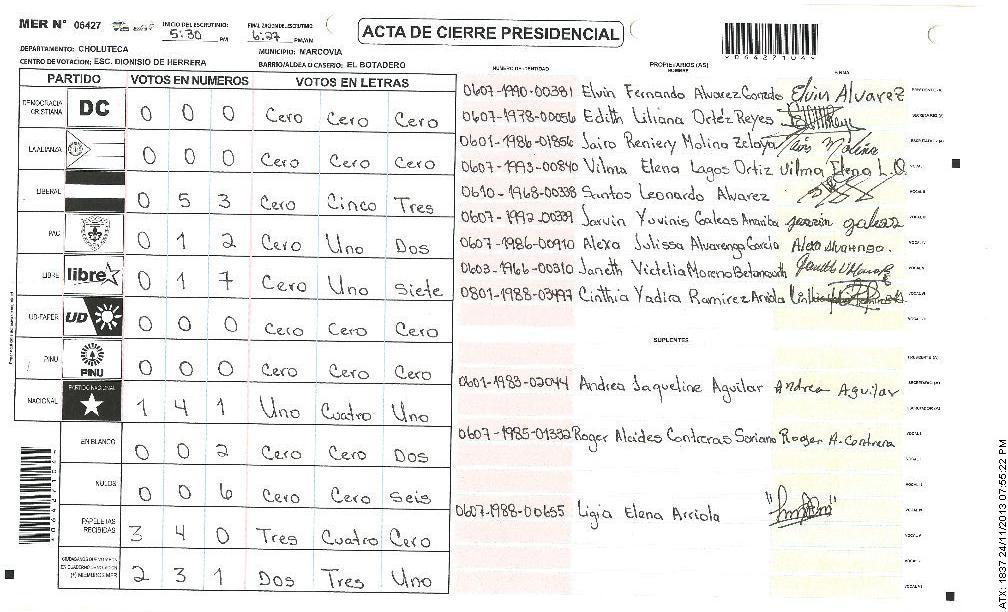 MER N° 06427
INICIO DEL ESCRUTINIO: 5:30 PM
FINALIZACION DEL ESCRUTINIO: 6:27 PM/AN
ACTA DE CIERRE PRESIDENCIAL
DEPARTAMENTO: CHOLUTECA
MUNICIPIO: MARCOVIA
CENTRO DE VOTACION: ESC. DIONISIO DE HERRERA
BARRIO/ALDEA O CASERIO: EL BOTADERO
PARTIDO VOTOS EN NUMEROS VOTOS EN LETRAS
DEMOCRACIA CRISTIANA DC 0 0 0 Cero Cero Cero
LA ALIANZA 0 0 0 Cero Cero Cero
LIBERAL 0 5 3 Cero Cinco Tres
PAC 0 1 2 Cero Uno Dos
LIBRE libre 0 1 7 Cero Uno Siete
UD-FAPER UD 0 0 0 Cero Cero Cero
PINU PINU 0 0 0 Cero Cero Cero
NACIONAL PARTIDO NACIONAL 1 4 1 Uno Cuatro Uno
EN BLANCO 0 0 2 Cero Cero Dos
NULOS 0 0 6 Cero Cero Seis
PAPELETAS RECIBIDAS 3 4 0 Tres Cuatro Cero
2 3 1 Dos Tres Uno
NUMERO DE IDENTIDAD
PROPIETARIOS (AS)
NOMBRE
FIRMA
0607-1990-00381 Elvin Fernando Alvarez Elvin Alvarez
0607-1978-00056 Edith Liliana Ortéz Reyes
0601-1986-01856 Jairo Reniery Molina Zelaya Molina
0607-1993-00840 Vilma Elena Lagos Ortiz Vilma Elena L.O.
0610-1968-00338 Santos Leonardo Alvarez
0607-1992-00339 Jarvin Yuvinis Galeas
0607-1986-00910 Alexa Julissa Alvarenga Garcia
0603-1966-00310 Janeth Victelia Moreno Betancourth
0801-1988-03497 Cinthia Yadira Ramirez Arriola
SUPLENTES
0601-1983-02044 Andrea Jaqueline Aguilar Andrea Aguilar
0607-1985-01332 Roger Alcides Contreras Soriano Roger A. Contrera
0607-1988-00655 Ligia Elena Arriola
ATX: 1837 24/11/2013 07:55:22 PM